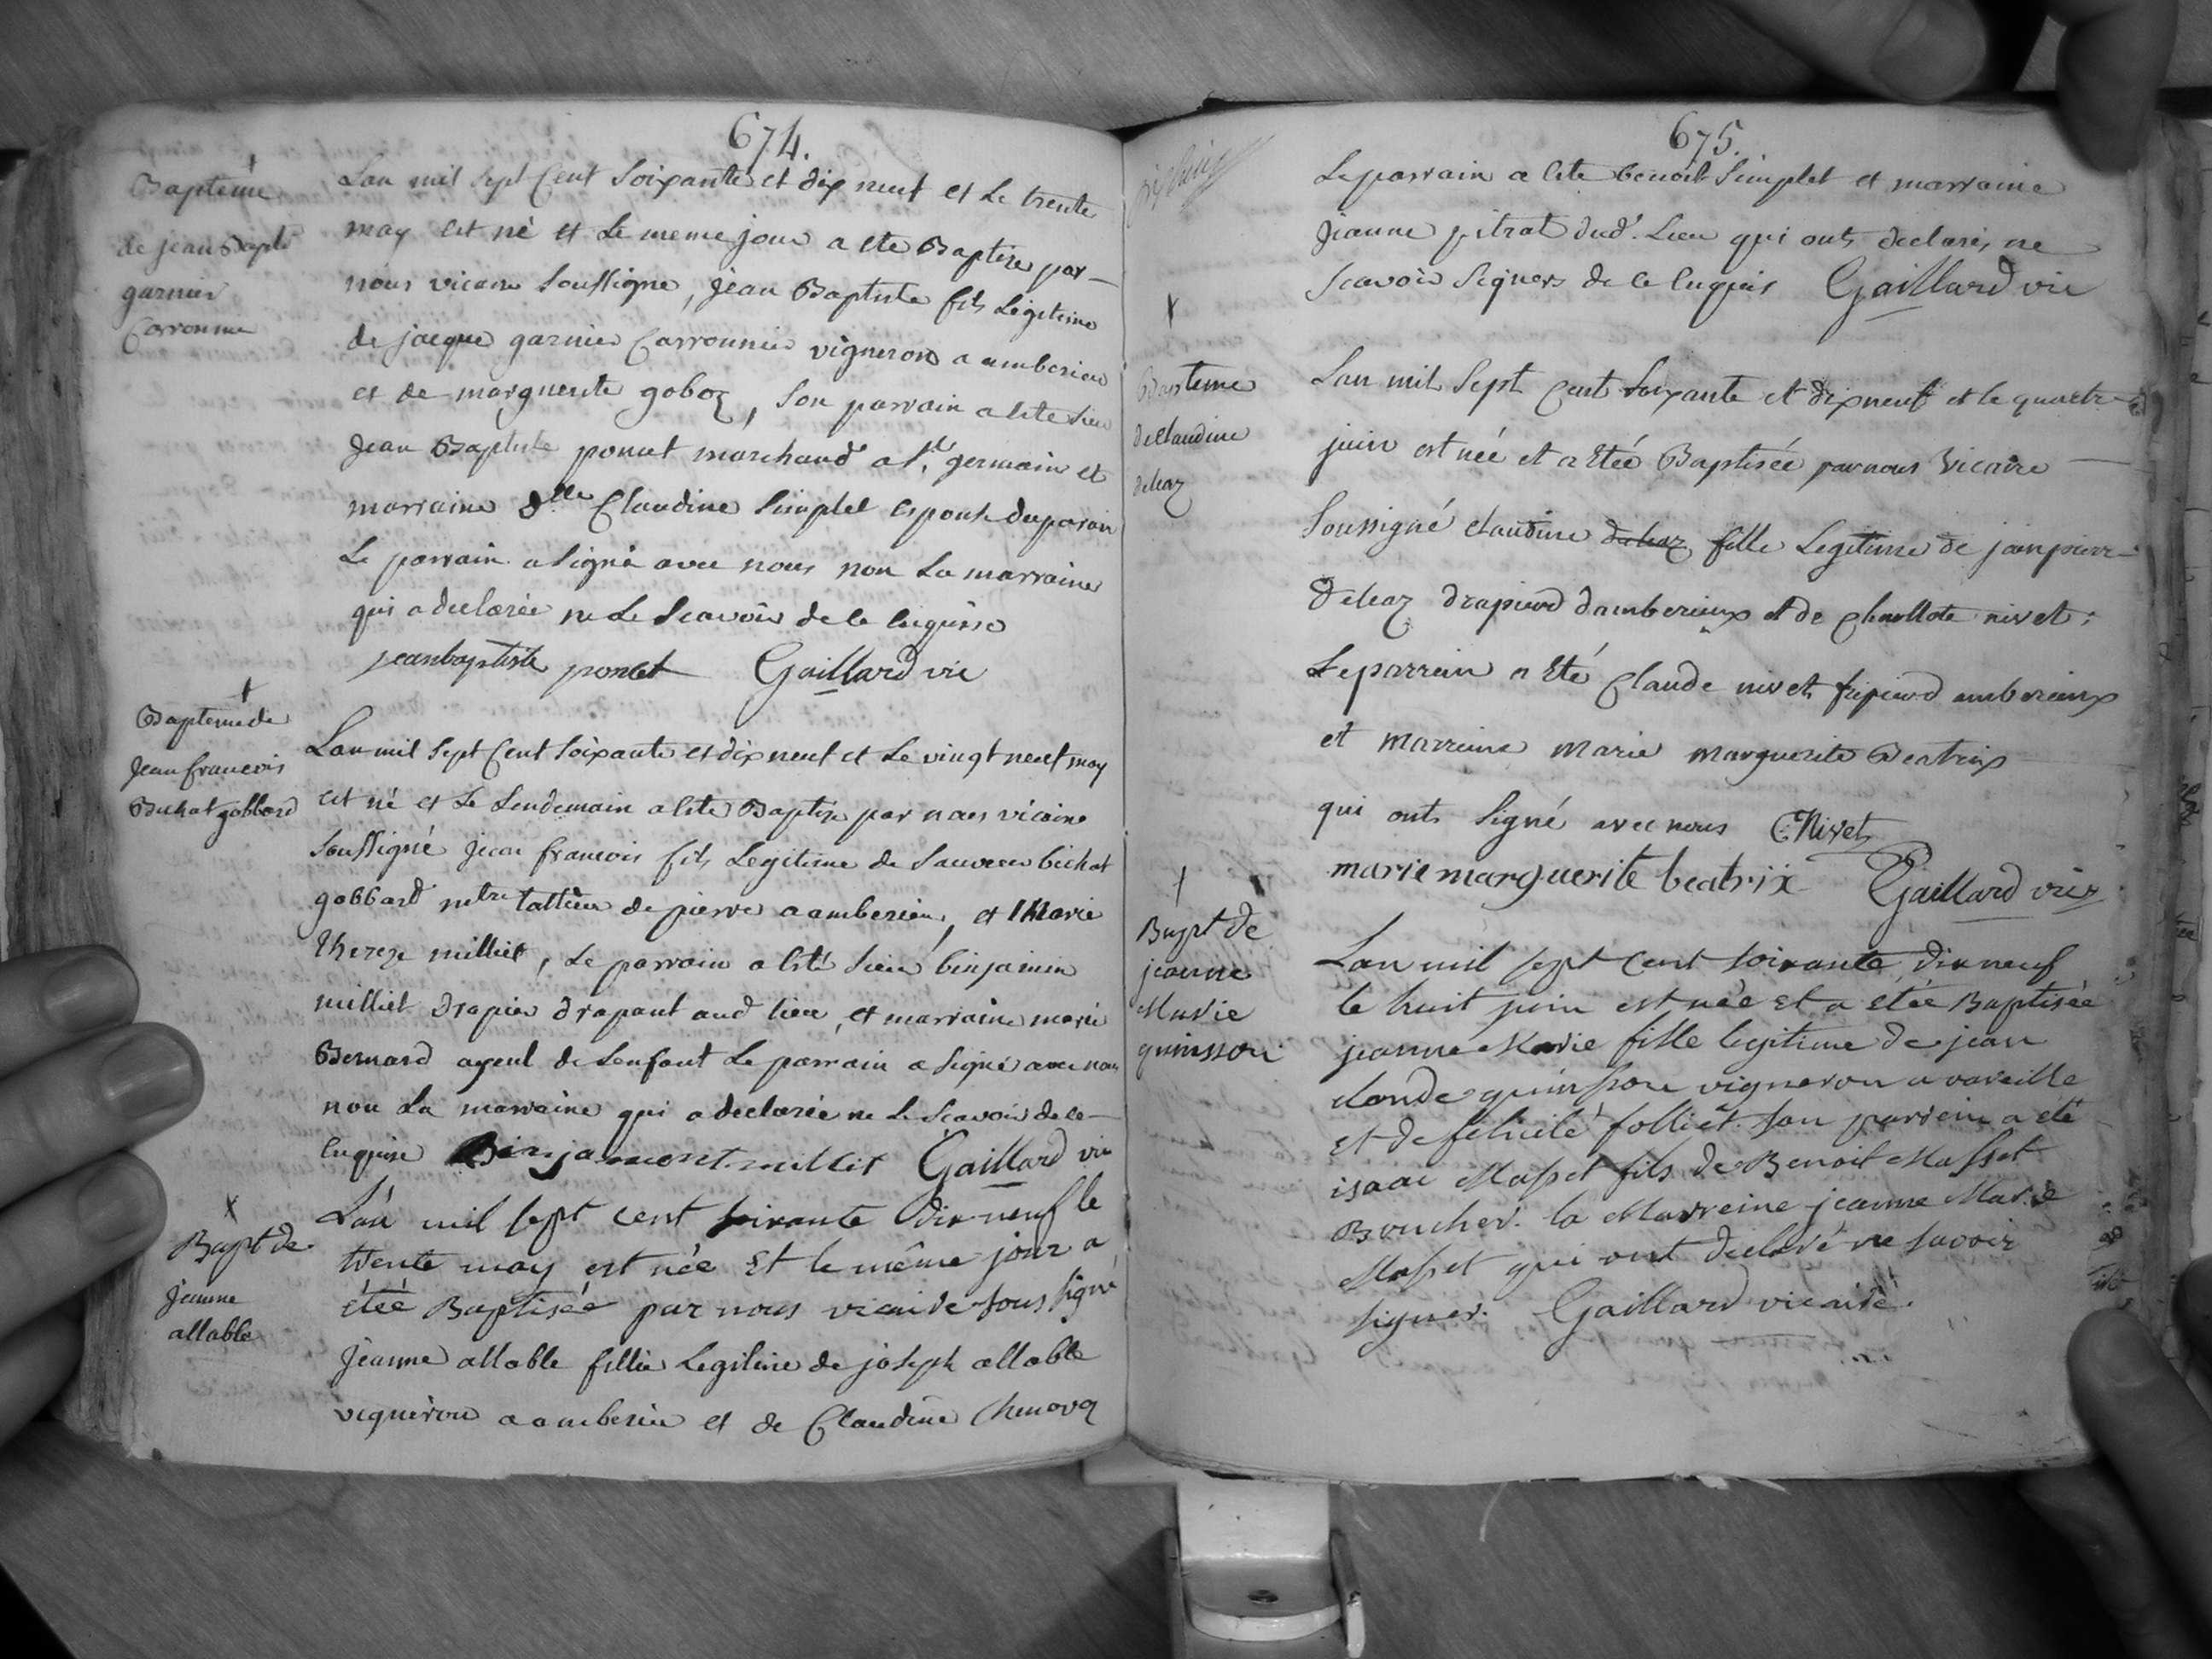 674.
Baptême
de jean Bapte
garnier
Carronnier
Lan mil sept Cent soixante et dix neuf et le trente
may est né et le meme jour a ete Baptize par
nous vicaire soussigne, jean Baptiste fils Légitime
de jacque garnier Carronnier vigneron a amberieu
et de marguerite goboz, son parrain a ete sieur
Jean Baptiste poncet marchand a st. germain et
marraine dlle Claudine Simplet epouse du parain
Le parrain a signé avec nous non la marraine
qui a declarée ne Le Scavoir de ce enquise
jeanbaptiste poncet Gaillard vic
Baptême de
Jean francois
Buchat gobbard
Lan mil sept Cent soixante et dix neuf et Le vingt neuf may
est né et Le Lendemain a ete Baptize par nous vicaire
soussigné jean francois fils Legitime de Sauveur bichat
gobbard mtre tallieur de pierre a amberieu, et Marie
thereze milliet, Le parrain a eté sieur binjamin
milliet drapier drapant aud lieu, et marraine marie
Bernard ayeul de Lenfant Le parrain a signé avec nous
non La marraine qui a declarée ne Le Scavoir de ce
enquise Binjamont millit Gaillard vic
Bapt de
jeanne
allable
L'an mil sept cent soixante dix-neuf le
trente may est née Et le même jour a
étéé Baptisée par nous vicaire sous signé
Jeanne allable fillie Legitime de joseph allable
vigneron a amberieu et de Claudine Chenavaz
675.
Le parrain a ete benoit Simplet et marraine
jeanne pitrat dud. Lieu qui onts declarés ne
scavoir signers de ce enquis Gaillard vic
Bapteme
de Claudine
deleaz
Lan mil Sept Cent soixante et dixneuf et le quatre
juin est née et a Etéé Baptisée par nous Vicaire
Soussigné claudine deleaz fille Legitime de jean pierre
Deleaz drapierd damberieux et de Charllote nivet.
Le parrein a Eté Claude nivet fripierd amberieux
et marreine marie marguerite Beatrix
qui onts signé avec nous C. Nivet
marie marguerite beatrix Gaillard vic
Bapt de
jeanne
Marie
quinsson
Lan mil sept cent soixante dix neuf
le huit juin est née et a étée Baptisée
jeanne Marie fille legitime de jean
claude quinsson vigneron a vareille
et de felicité folliet. son parrein a été
isaac Masset fils de Benoit Masset
Boucher. la Marreine jeanne Marie
Masset qui ont declaré ne savoir
signer. Gaillard vicaire.